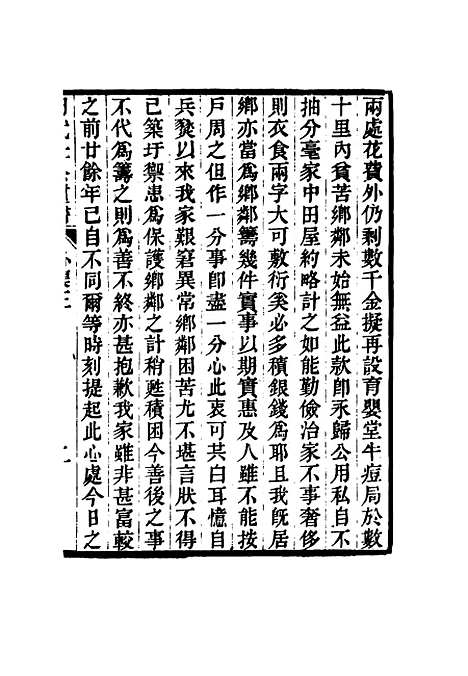 兩處花費外仍剩數千金擬再設育嬰堂牛痘局於數
十里內貧苦鄉鄰未始無益此款卽永歸公用私自不
抽分毫家中田屋約略計之如能勤儉治家不事奢侈
則衣食兩字大可敷衍奚必多積銀錢爲耶且我旣居
鄉亦當爲鄉鄰籌幾件實事以期實惠及人雖不能按
戶周之但作一分事卽盡一分心此衷可共白耳憶自
兵燹以來我家艱窘異常鄉鄰困苦尤不堪言狀不得
已築圩禦患爲保護鄉鄰之計稍甦積困今善後之事
不代爲籌之則爲善不終亦甚抱歉我家雖非甚富較
之前廿餘年已自不同爾等時刻提起此心處今日之